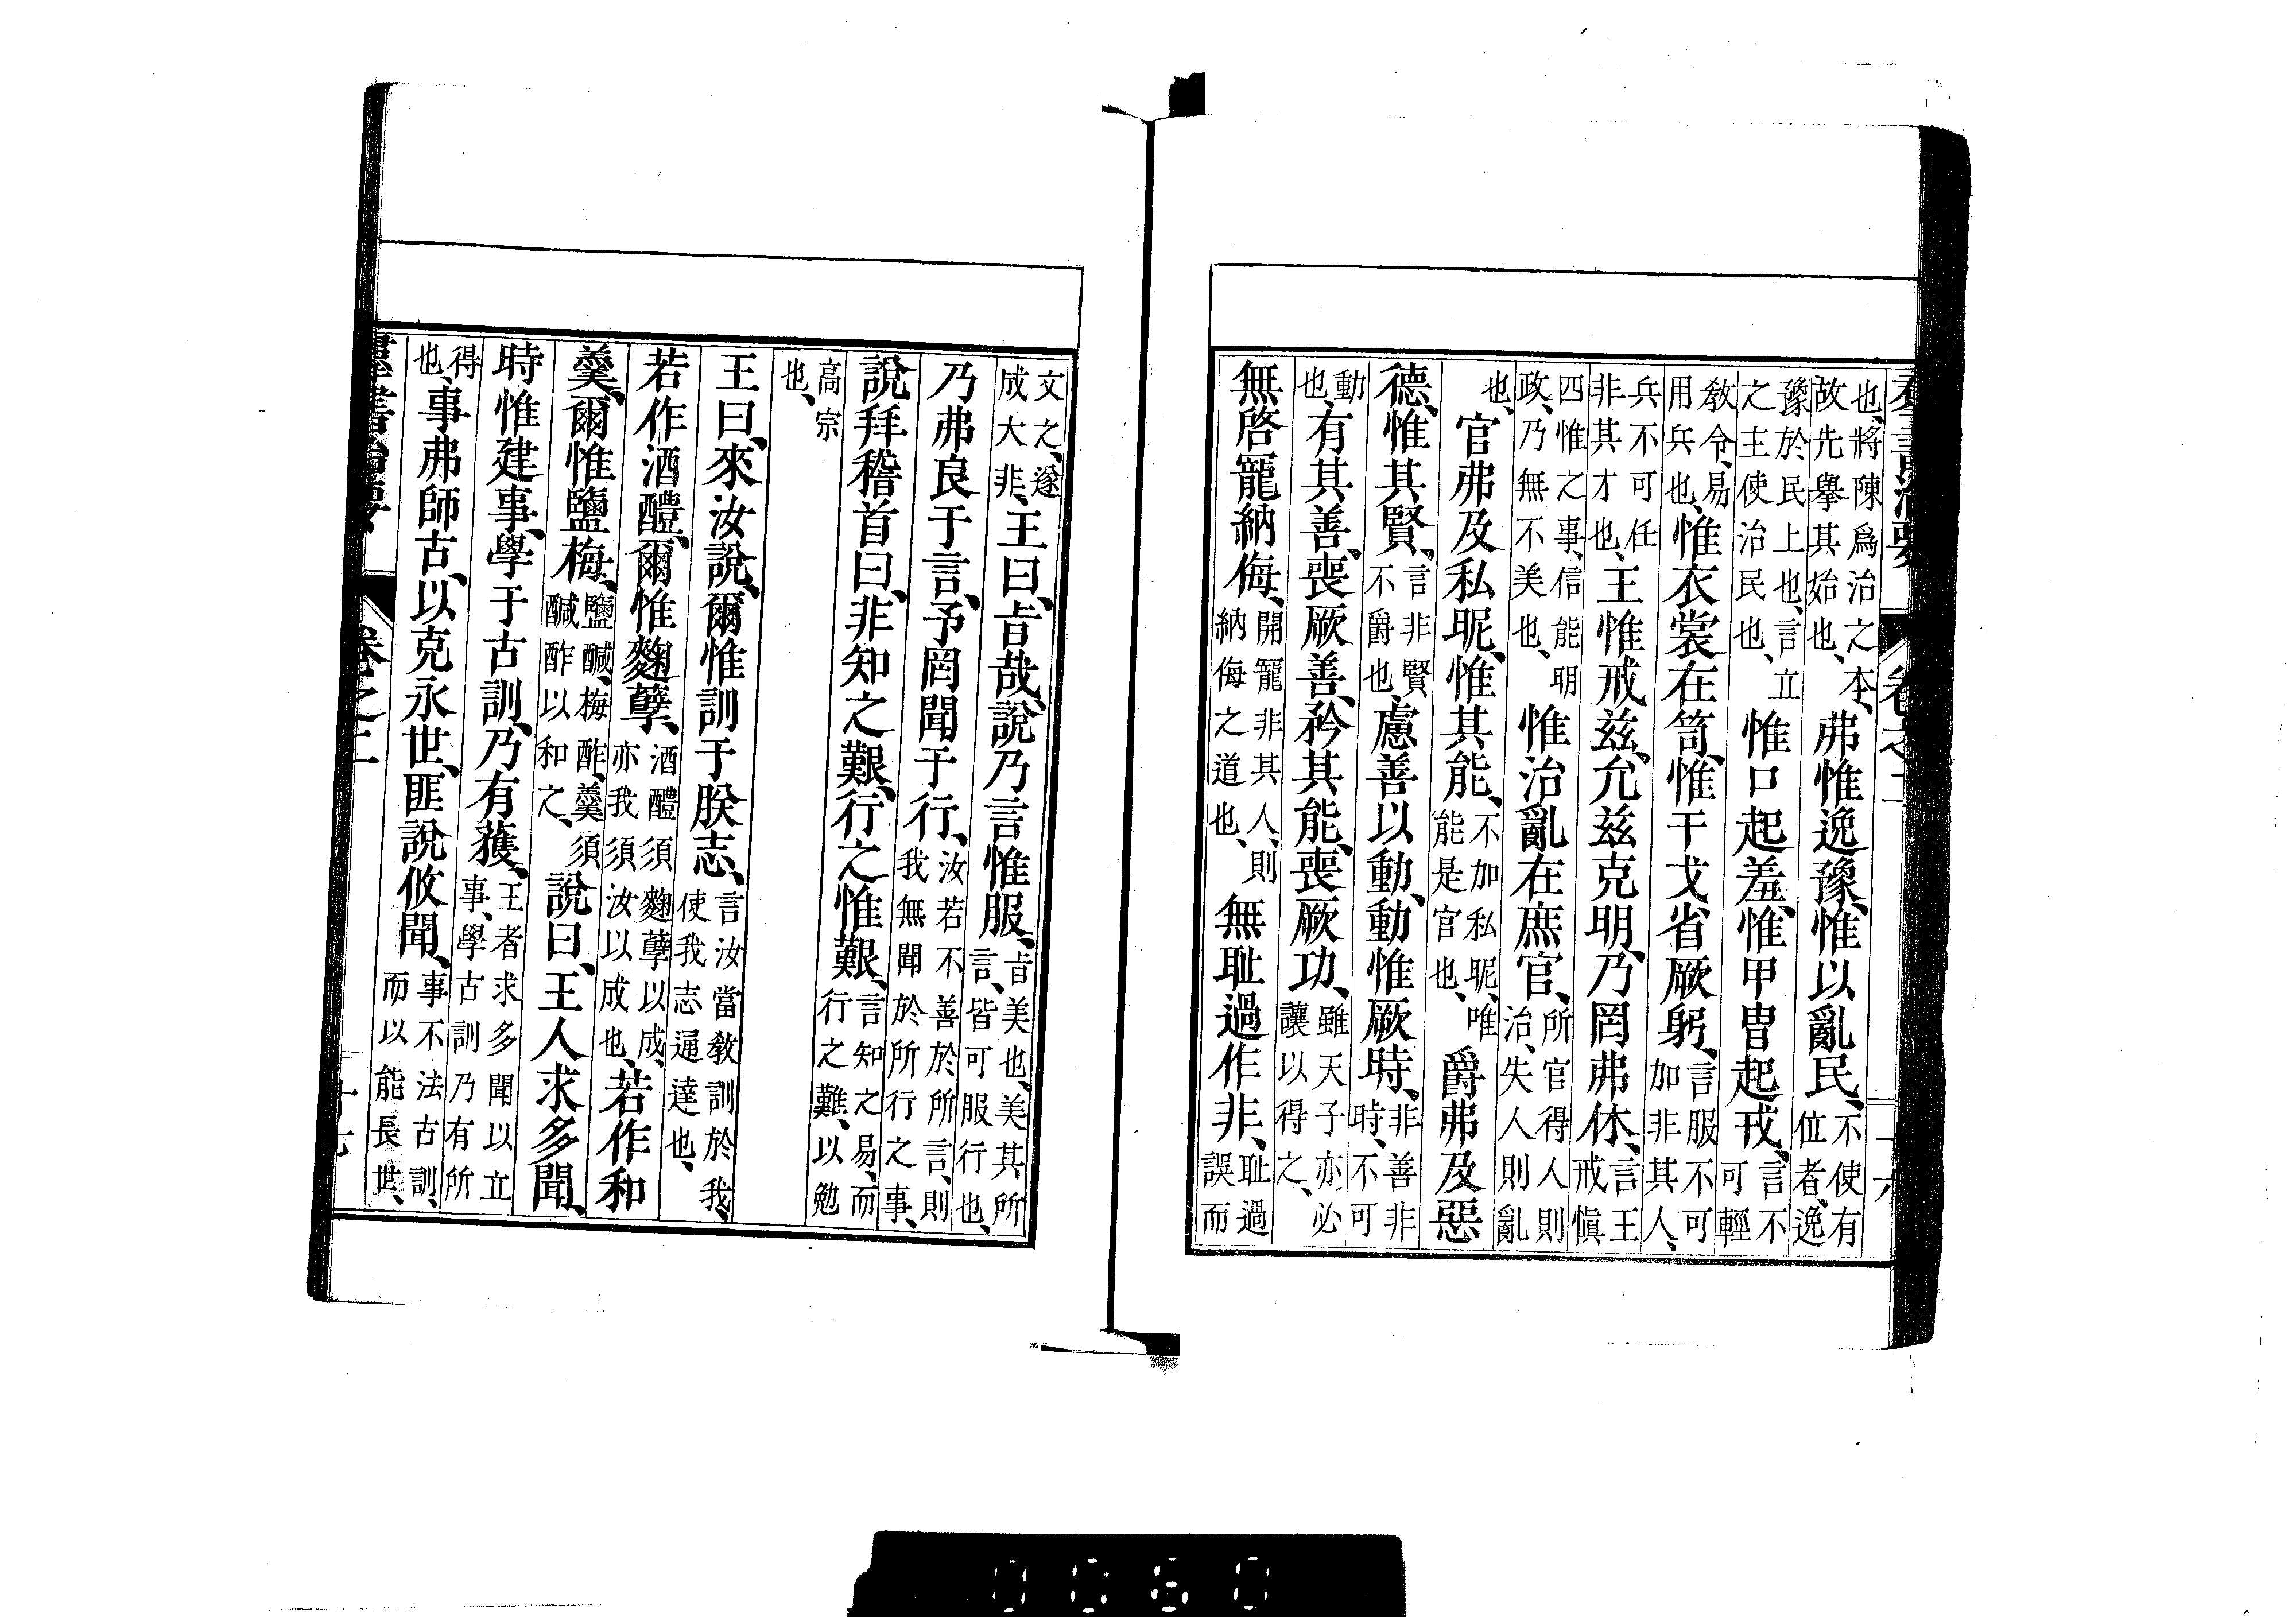 羣書治要 卷之二 十六
也、將陳爲治之本、故先擧其始也、弗惟逸豫、惟以亂民、不使有位者、逸
豫於民上也、言立之主使治民也、惟口起羞、惟甲冑起戎、言不可輕
敎令、易用兵也、惟衣裳在笥、惟干戈省厥躬、言服不可加非其人、
兵不可任非其才也、王惟戒兹、允兹克明、乃罔弗休、言王戒愼
四惟之事、信能明政、乃無不美也、惟治亂在庶官、所官得人則治、失人則亂
也、官弗及私昵、惟其能、不加私昵、唯能是官也、爵弗及惡
德、惟其賢、言非賢不爵也、慮善以動、動惟厥時、非善非時、不可
動也、有其善、喪厥善、矜其能、喪厥功、雖天子亦必讓以得之、
無啓寵納侮、開寵非其人、則納侮之道也、無耻過作非、耻過誤而
文之、遂成大非、王曰、旨哉、說乃言惟服、旨美也、美其所言、皆可服行也、
乃弗良于言、予罔聞于行、汝若不善於所言、則我無聞於所行之事、
說拜稽首曰、非知之艱、行之惟艱、言知之易、而行之難、以勉
高宗也、
王曰、來汝說、爾惟訓于朕志、言汝當敎訓於我、使我志通達也、
若作酒醴、爾惟麴糵、酒醴須麴糵以成、亦我須汝以成也、若作和
羹、爾惟鹽梅、鹽醎、梅酢、羹須醎酢以和之、說曰、王人求多聞、
時惟建事、學于古訓、乃有獲、王者求多聞以立事、學古訓乃有所
得也、事弗師古、以克永世、匪說攸聞、事不法古訓、而以能長世、
羣書治要 卷之二 十七
0060